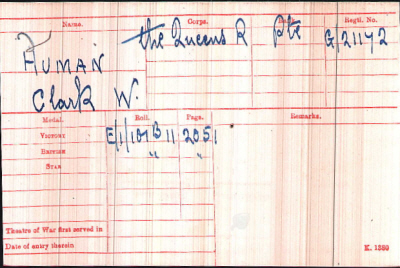 Name. Corps. Rank. Regtl. No.
HUMAN the Queens R Pte G/21142
Clark W.
Medal. Roll. Page. Remarks.
VICTORY E/1/107B11 2051
BRITISH " "
STAR
Theatre of War first served in
Date of entry therein K. 1380